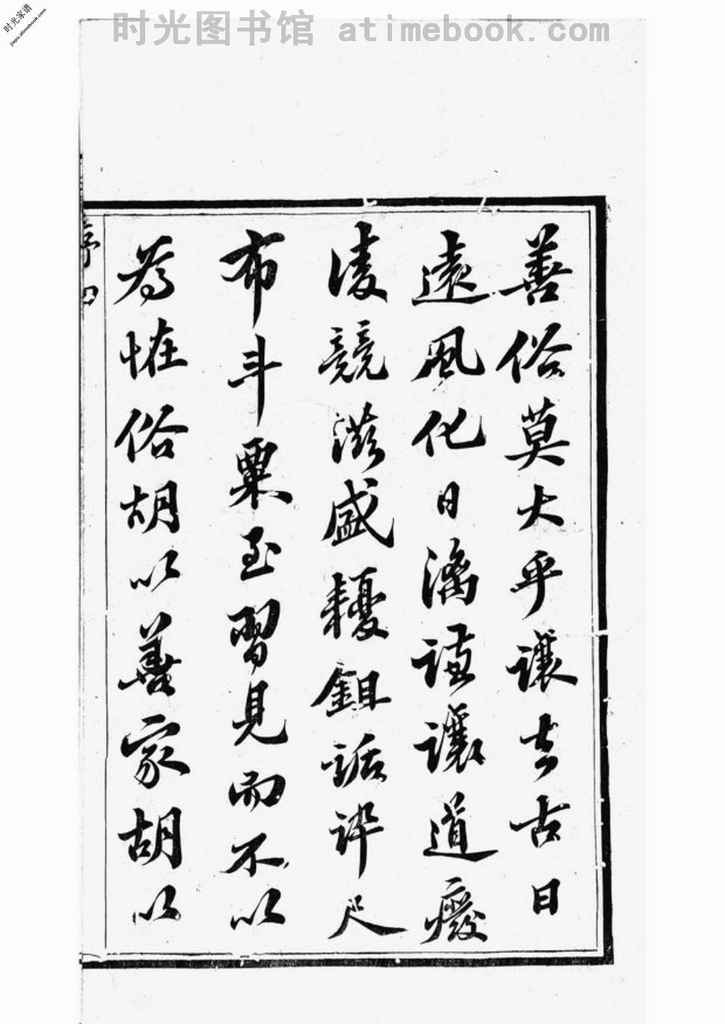 时光图书馆 atimebook.com
时光家谱
善俗莫大乎讓去古日
遠風化日漓謙讓道廢
凌競滋盛耰鉏詬誶尺
布斗粟至習見而不以
為恠俗胡以善家胡以
序